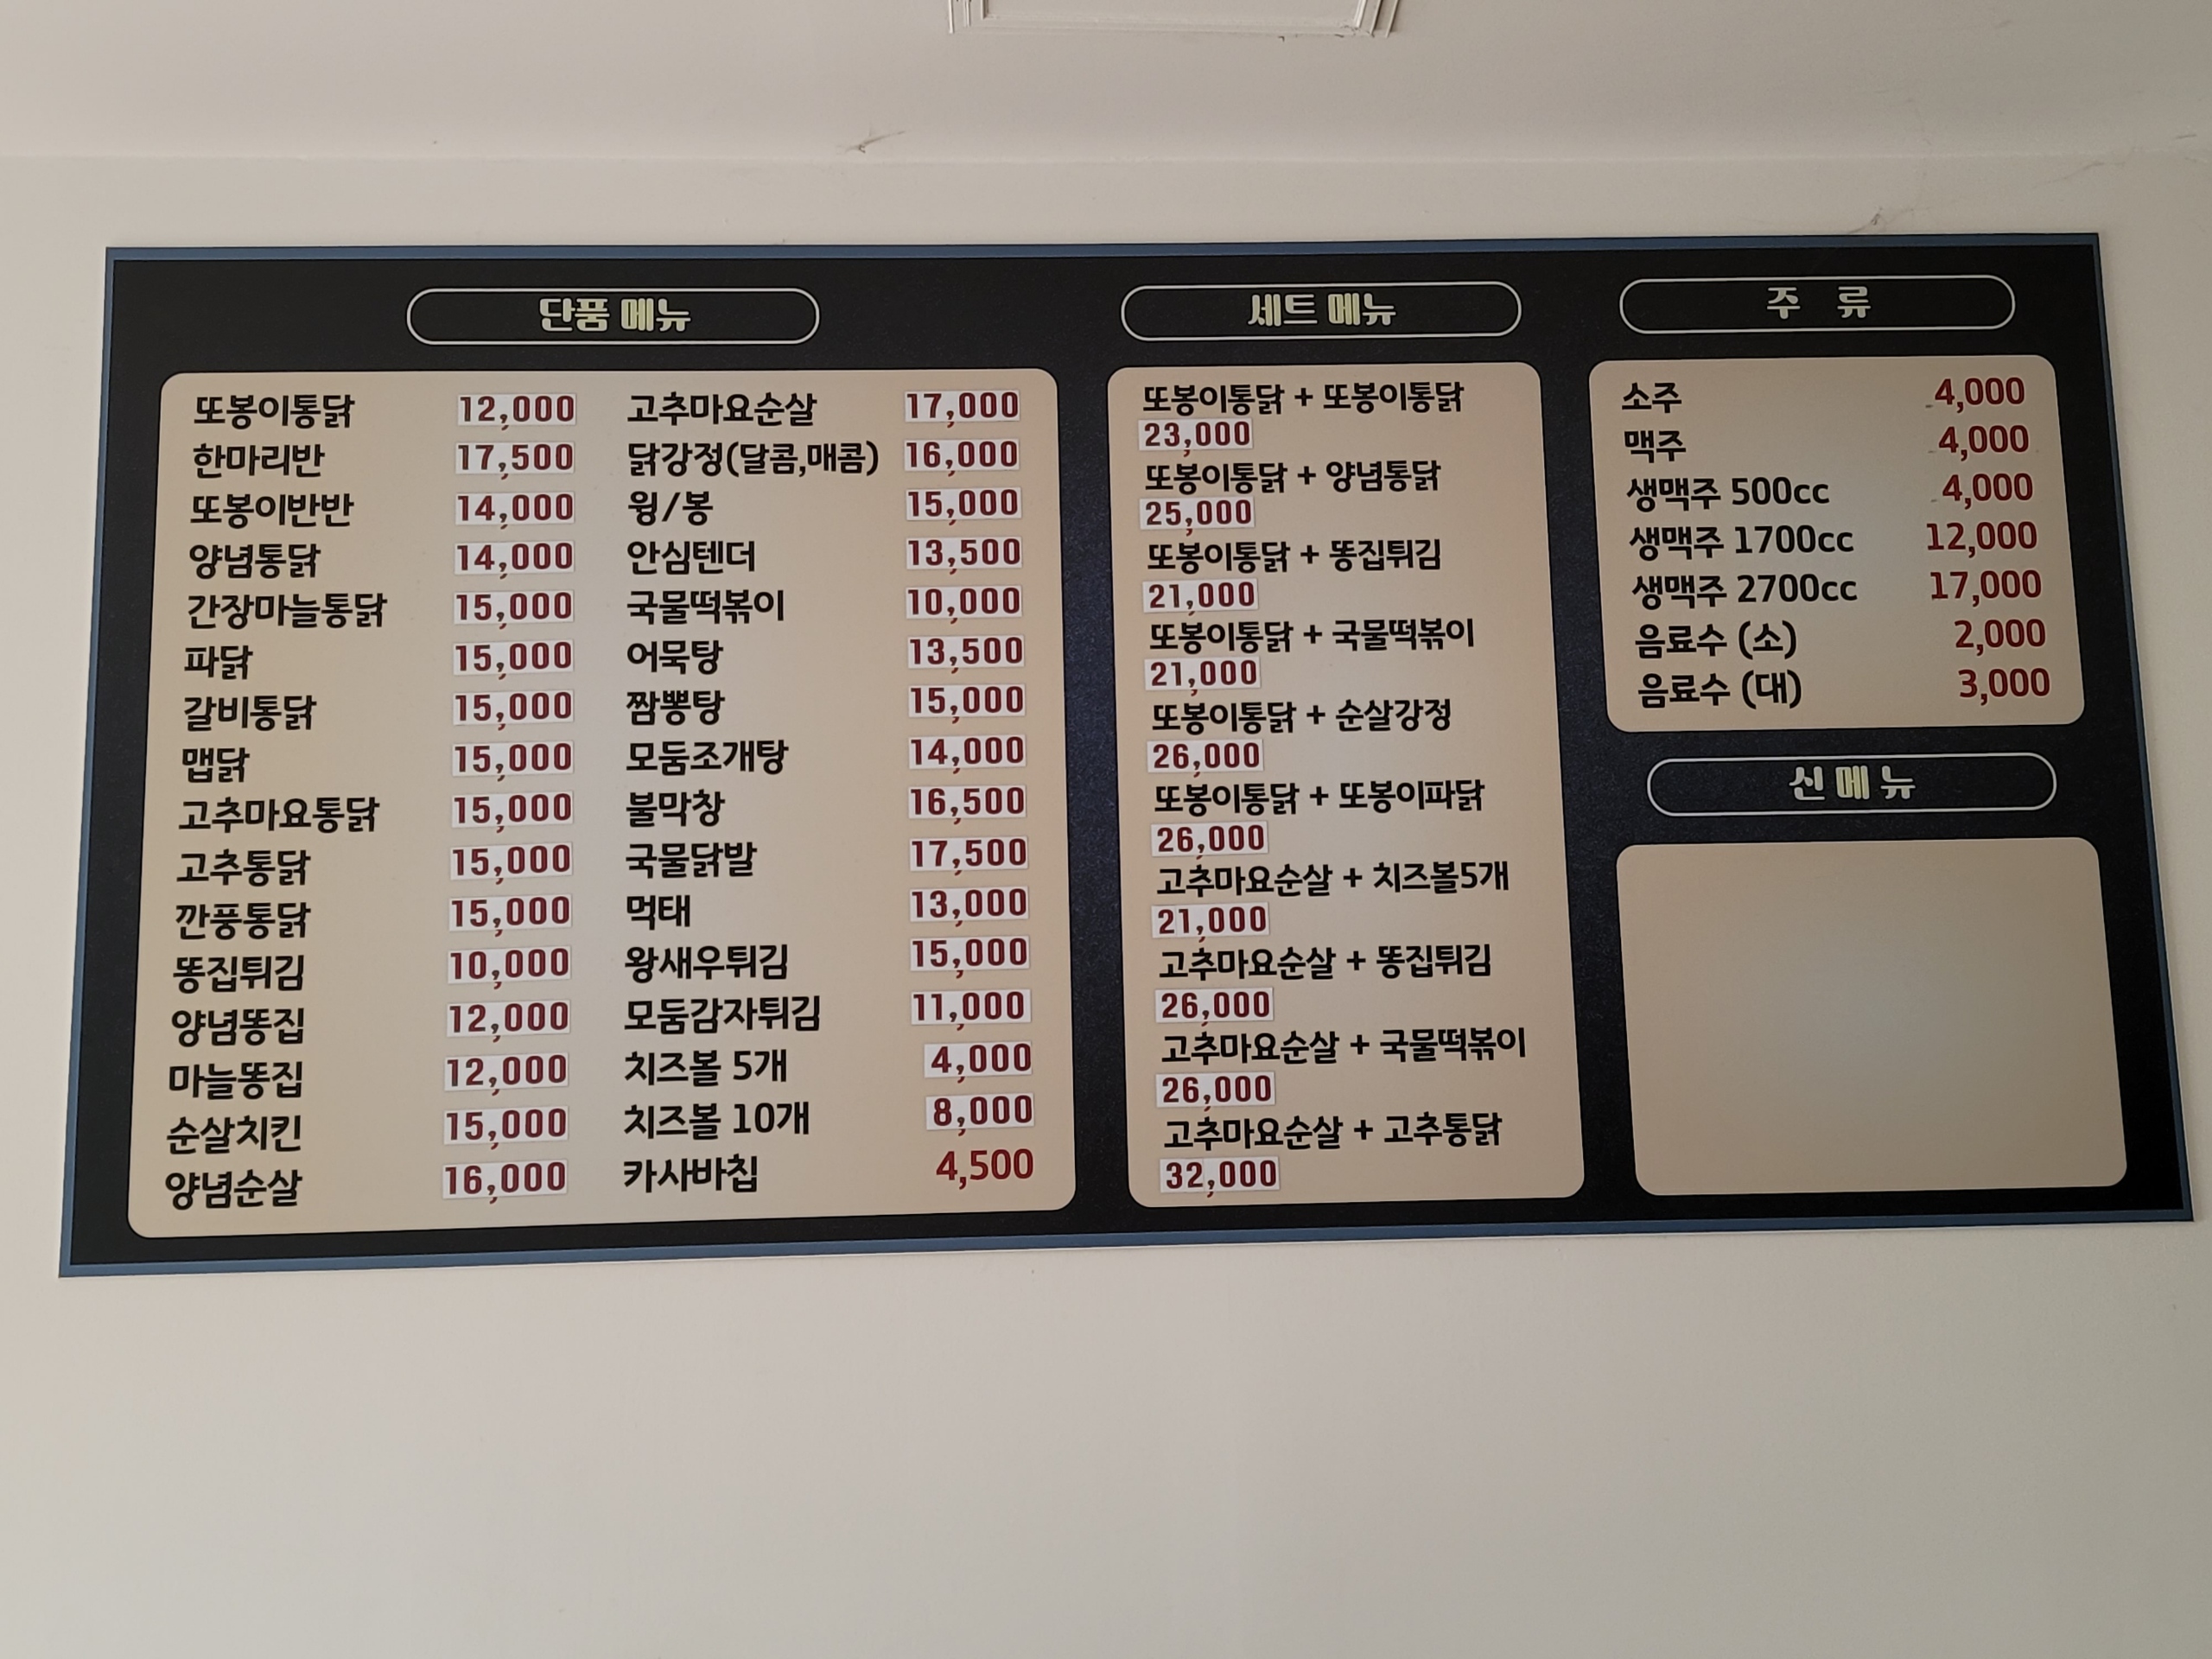 단품 메뉴
또봉이통닭 12,000
한마리반 17,500
또봉이반반 14,000
양념통닭 14,000
간장마늘통닭 15,000
파닭 15,000
갈비통닭 15,000
맵닭 15,000
고추마요통닭 15,000
고추통닭 15,000
깐풍통닭 15,000
똥집튀김 10,000
양념똥집 12,000
마늘똥집 12,000
순살치킨 15,000
양념순살 16,000
고추마요순살 17,000
닭강정(달콤,매콤) 16,000
윙/봉 15,000
안심텐더 13,500
국물떡볶이 10,000
어묵탕 13,500
짬뽕탕 15,000
모둠조개탕 14,000
불막창 16,500
국물닭발 17,500
먹태 13,000
왕새우튀김 15,000
모둠감자튀김 11,000
치즈볼 5개 4,000
치즈볼 10개 8,000
카사바칩 4,500
세트 메뉴
또봉이통닭 + 또봉이통닭
23,000
또봉이통닭 + 양념통닭
25,000
또봉이통닭 + 똥집튀김
21,000
또봉이통닭 + 국물떡볶이
21,000
또봉이통닭 + 순살강정
26,000
또봉이통닭 + 또봉이파닭
26,000
고추마요순살 + 치즈볼5개
21,000
고추마요순살 + 똥집튀김
26,000
고추마요순살 + 국물떡볶이
26,000
고추마요순살 + 고추통닭
32,000
주 류
소주 4,000
맥주 4,000
생맥주 500cc 4,000
생맥주 1700cc 12,000
생맥주 2700cc 17,000
음료수 (소) 2,000
음료수 (대) 3,000
신 메 뉴